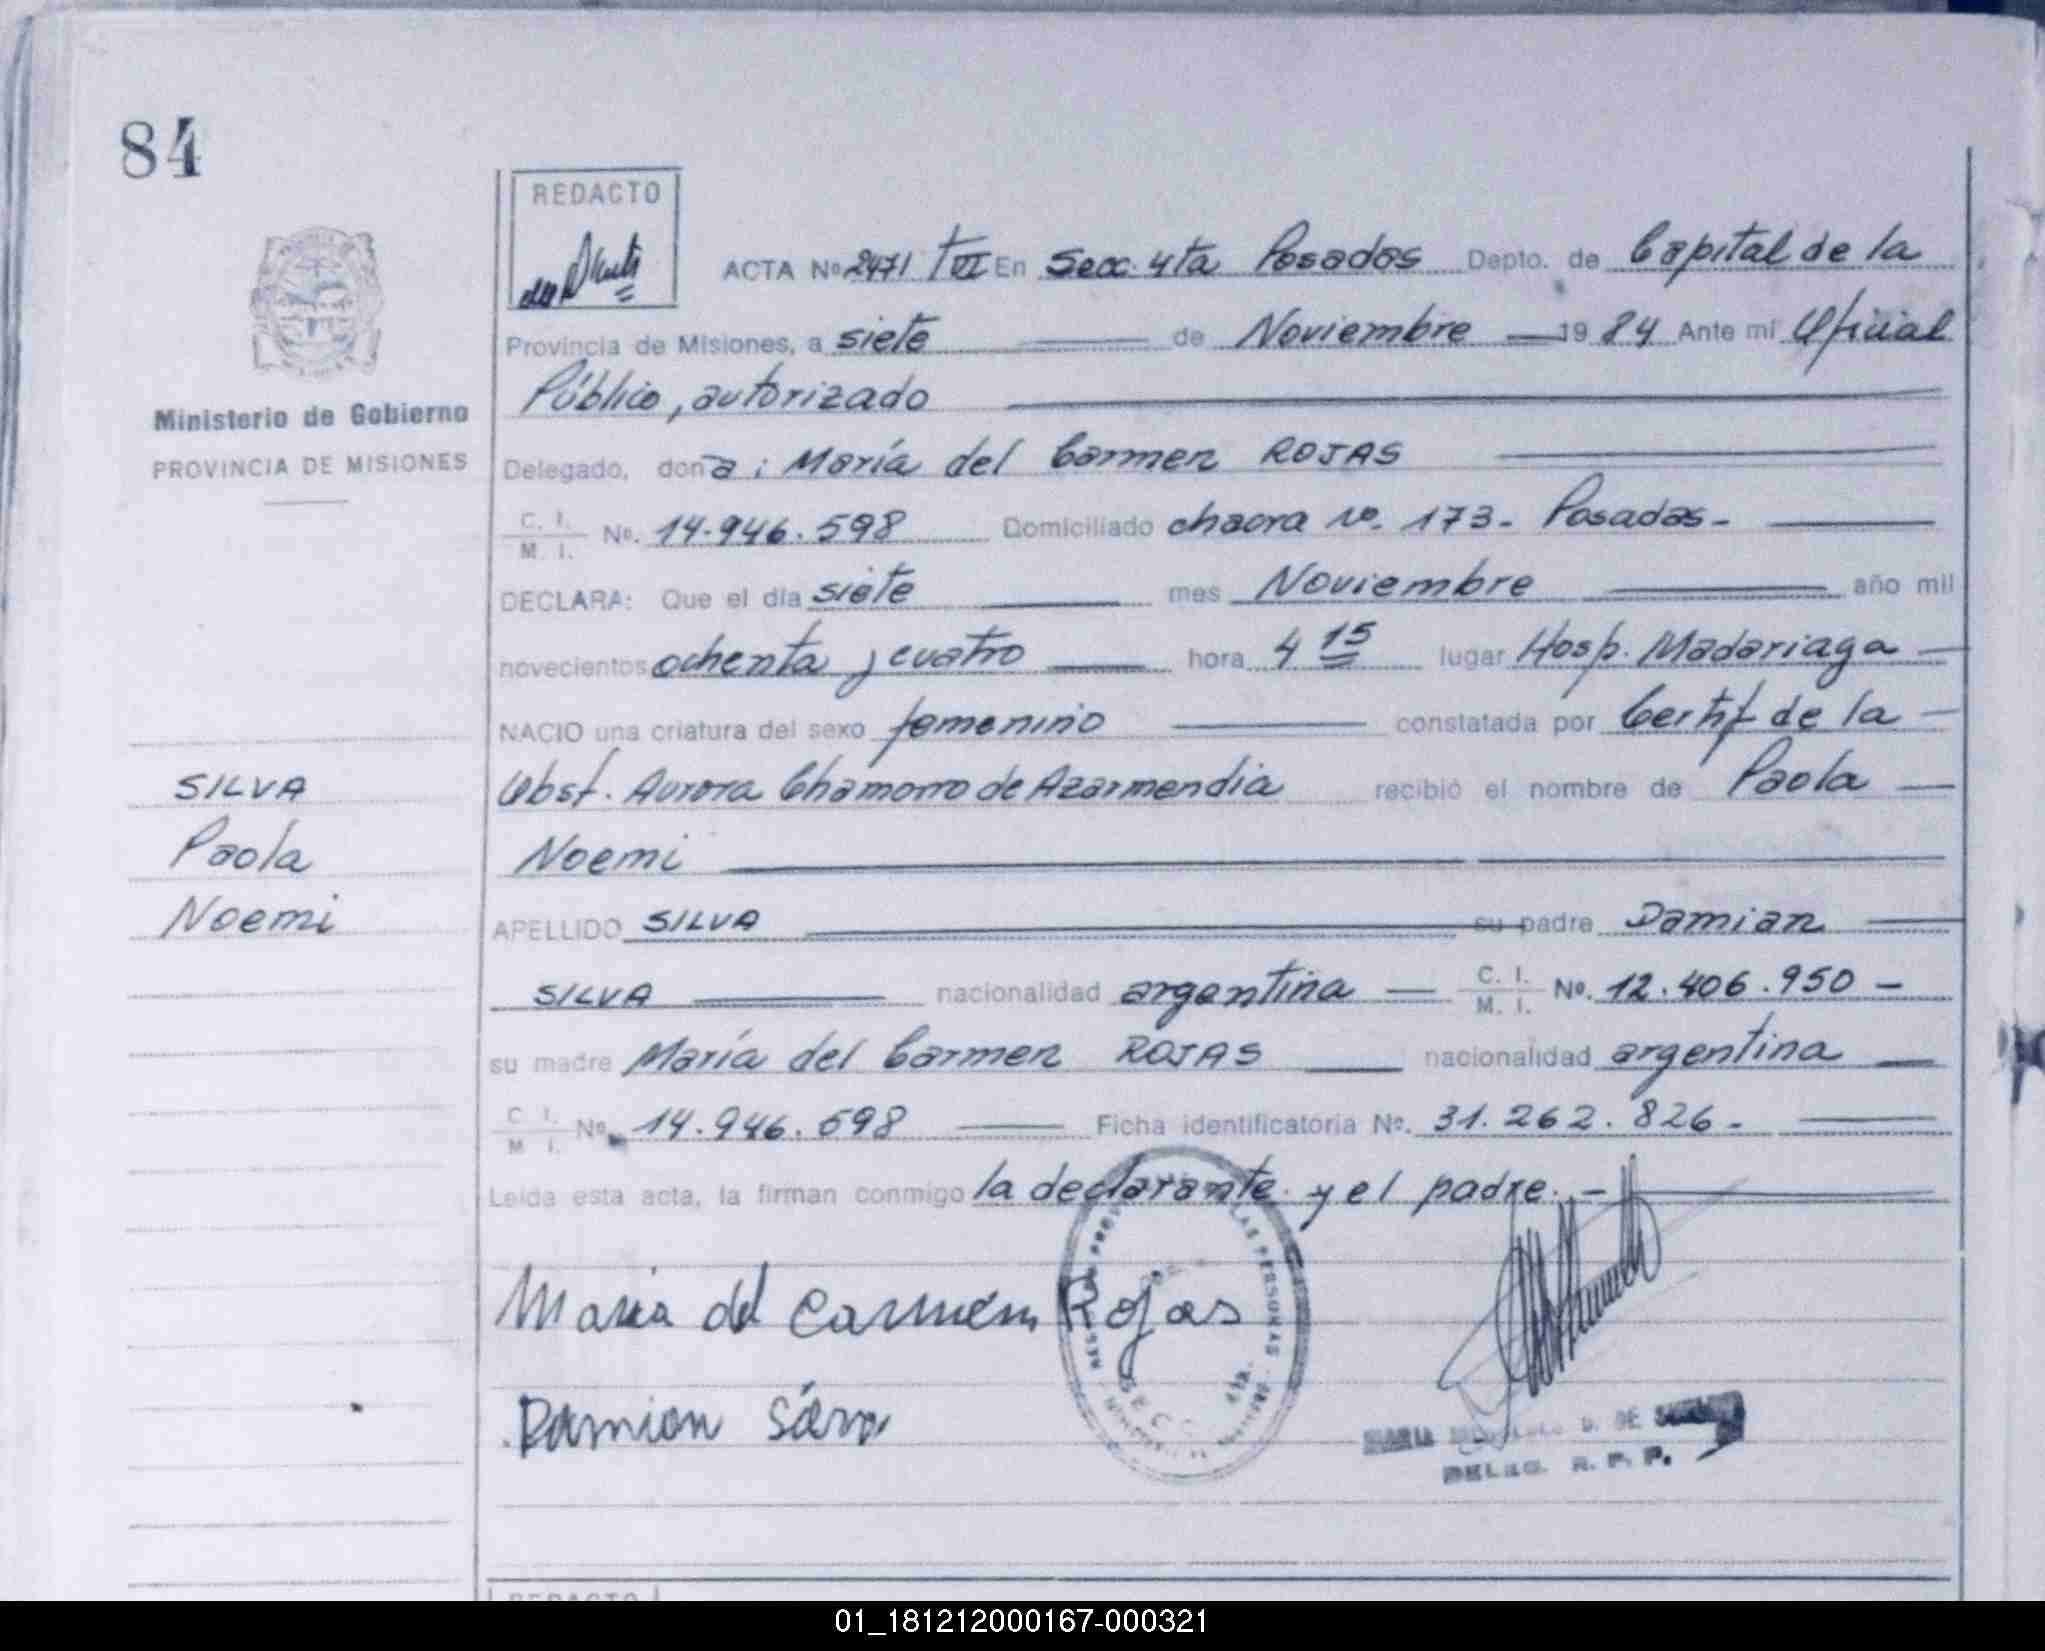 84
REDACTO
ACTA Nº 2471 T VI En Secc. 4ta Posadas Depto. de Capital de la
Provincia de Misiones, a siete de Noviembre 1984 Ante mí Oficial
Público, autorizado
Ministerio de Gobierno
PROVINCIA DE MISIONES
Delegado, don a : María del Carmen ROJAS
C. I.
M. I. No. 14.946.598 Domiciliado chacra no. 173 - Posadas -
DECLARA: Que el día siete mes Noviembre año mil
novecientos ochenta y cuatro hora 4 15 lugar Hosp. Madariaga
NACIO una criatura del sexo femenino constatada por Certif de la
Obst. Aurora Chamorro de Azarmendia recibió el nombre de Paola
Noemi
SILVA
Paola
Noemi
APELLIDO SILVA su padre Damian
SILVA nacionalidad argentina C. I. M. I. No. 12.406.950 -
su madre María del Carmen ROJAS nacionalidad argentina
C. I. M. I. No. 14.946.598 Ficha identificatoria No. 31.262.826 -
Leída esta acta, la firman conmigo la declarante y el padre. -
Maria del Carmen Rojas
Damian
LAS PERSONAS
SECC. 4ta.
MARIA D. DE
DELEG. R. P. P.
REDACTO
01_181212000167-000321